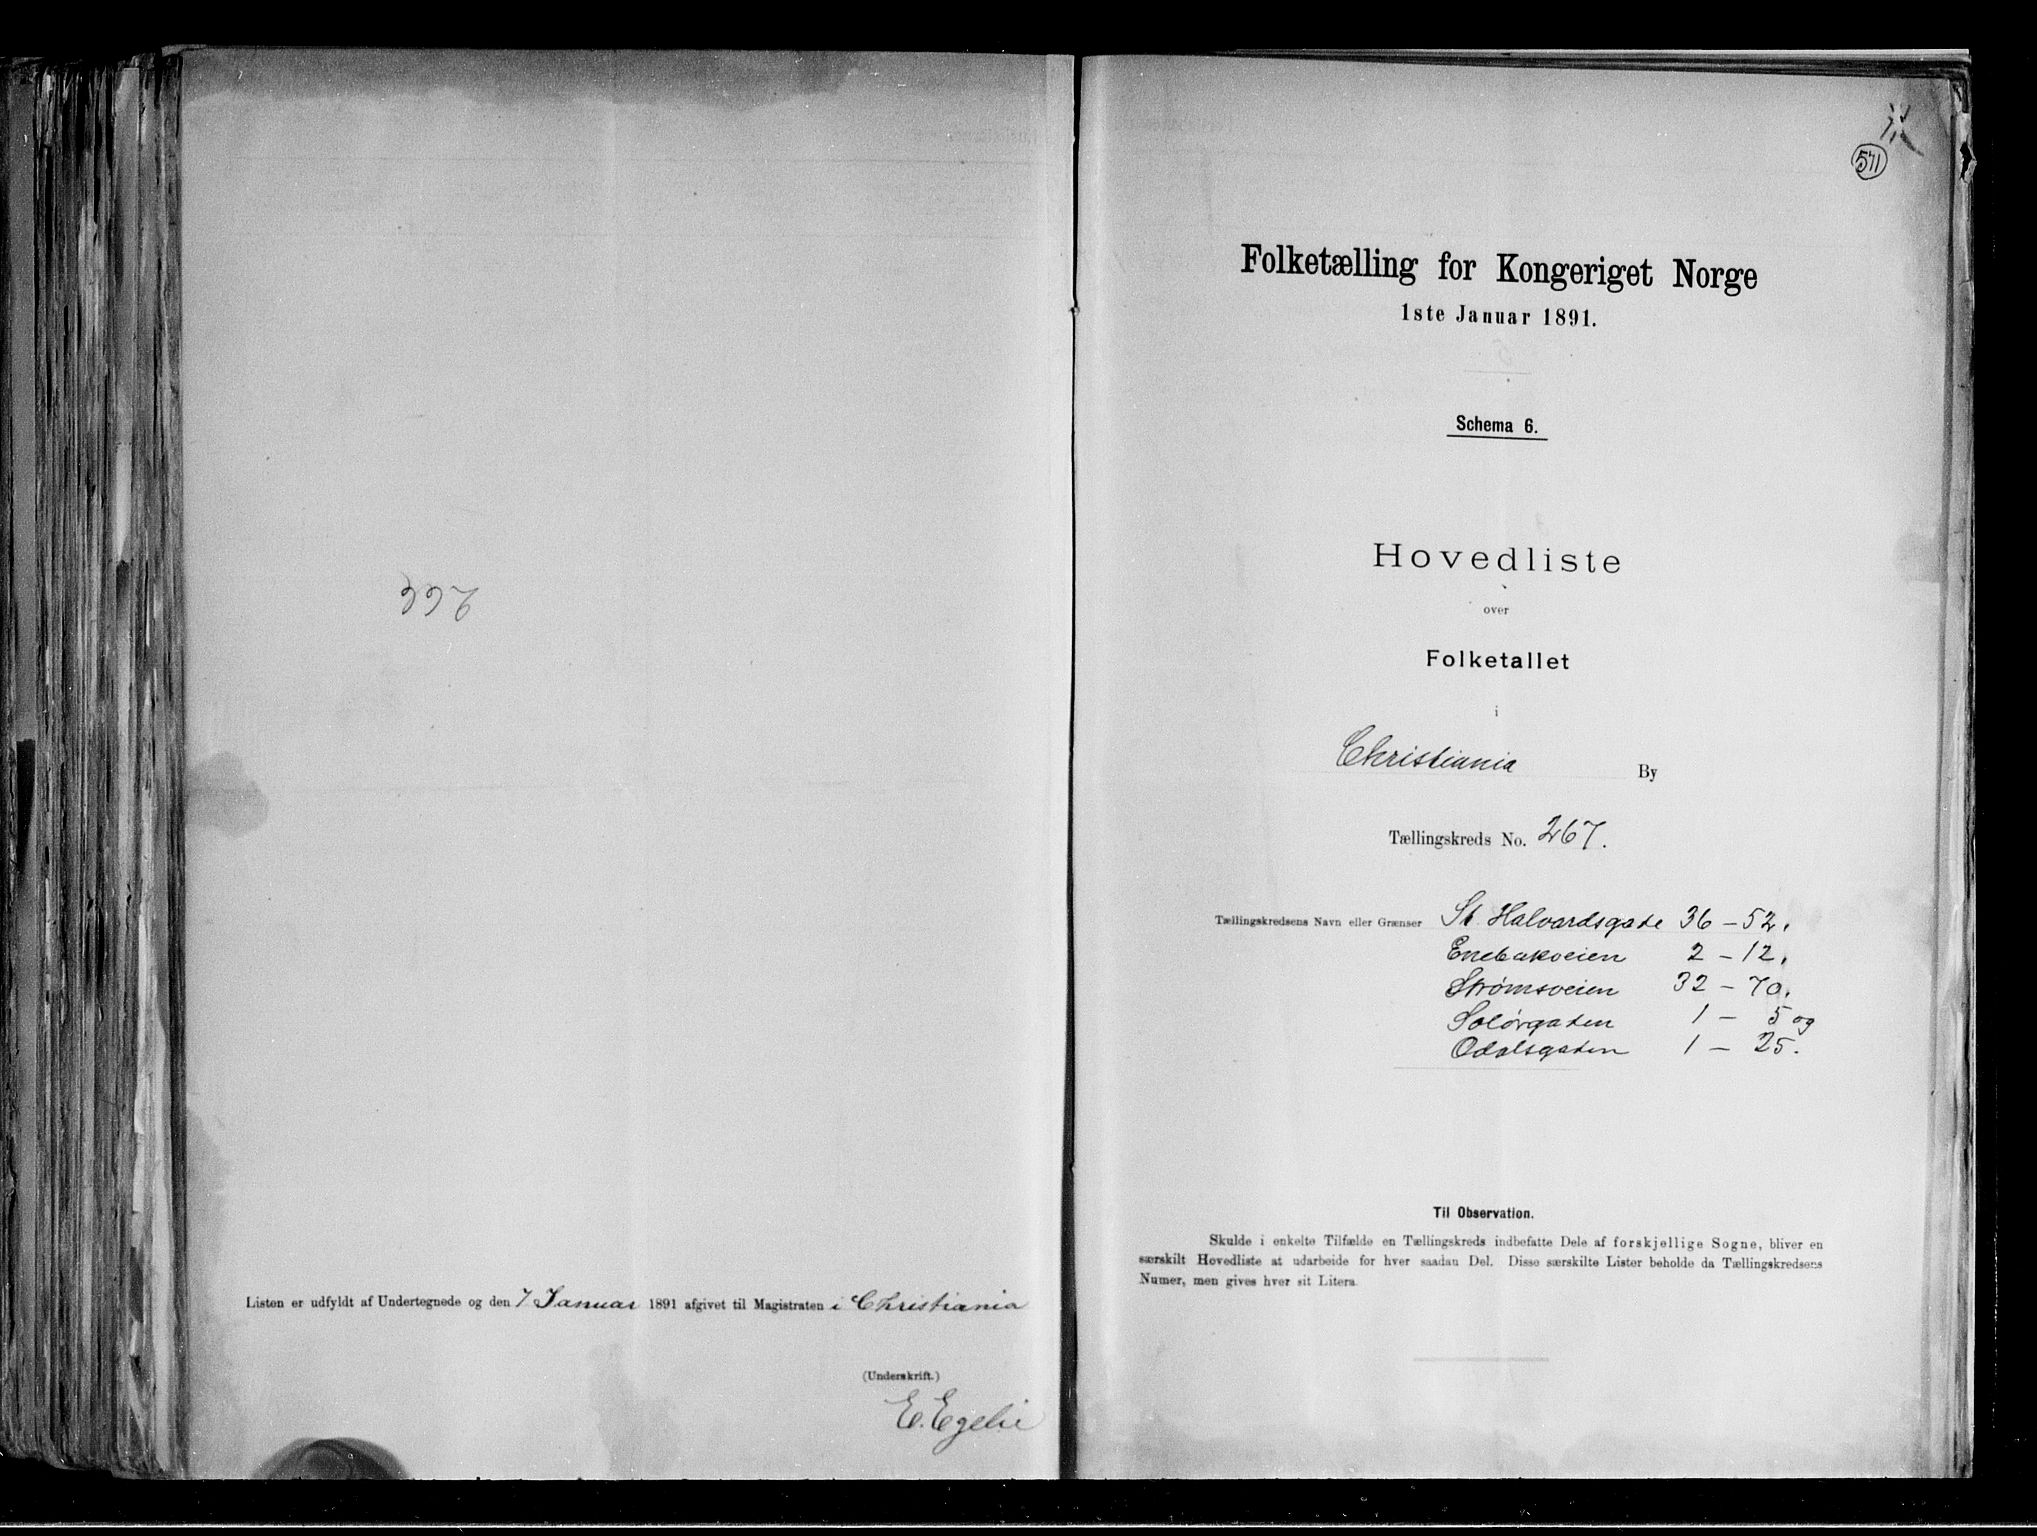 266
Listen er udfyldt af Undertegnede og den 7 Januar 1891 afgivet til Magistraten i Christiania
(Underskrift.)
E. Egelie
571
Folketælling for Kongeriget Norge
1ste Januar 1891.
Schema 6.
Hovedliste
over
Folketallet
i
Christiania By
Tællingskreds No. 267.
Tællingskredsens Navn eller Grænser St. Halvardsgade 36 - 52.
Enebakveien 2 - 12.
Strømsveien 32 - 70.
Solørgaden 1 - 5 og
Odalsgaden 1 - 25.
Til Observation.
Skulde i enkelte Tilfælde en Tællingskreds indbefatte Dele af forskjellige Sogne, bliver en
særskilt Hovedliste at udarbeide for hver saadan Del. Disse særskilte Lister beholde da Tællingskredsens
Numer, men gives hver sit Litera.